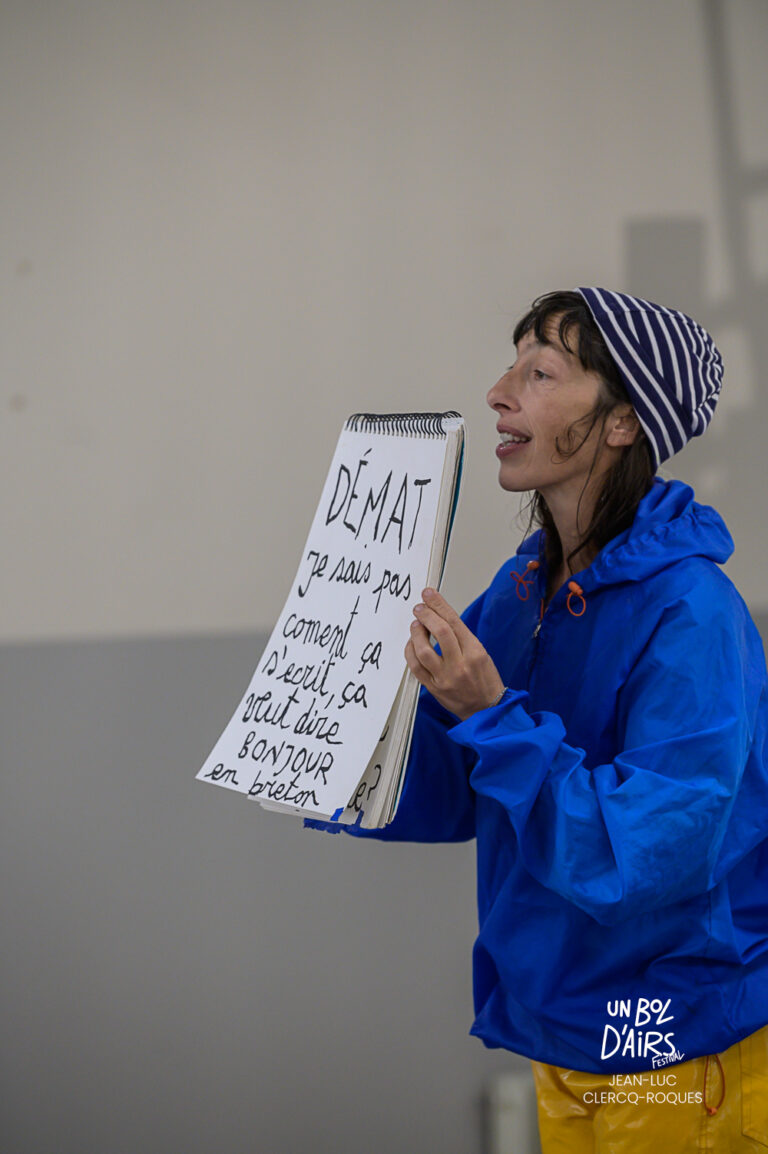 DÉMAT
je sais pas
coment ça
s'ecrit, ça
veut dire
BONJOUR
en breton
e?
UN BOL
D'AiRS
FESTiVAL
JEAN-LUC
CLERCQ-ROQUES